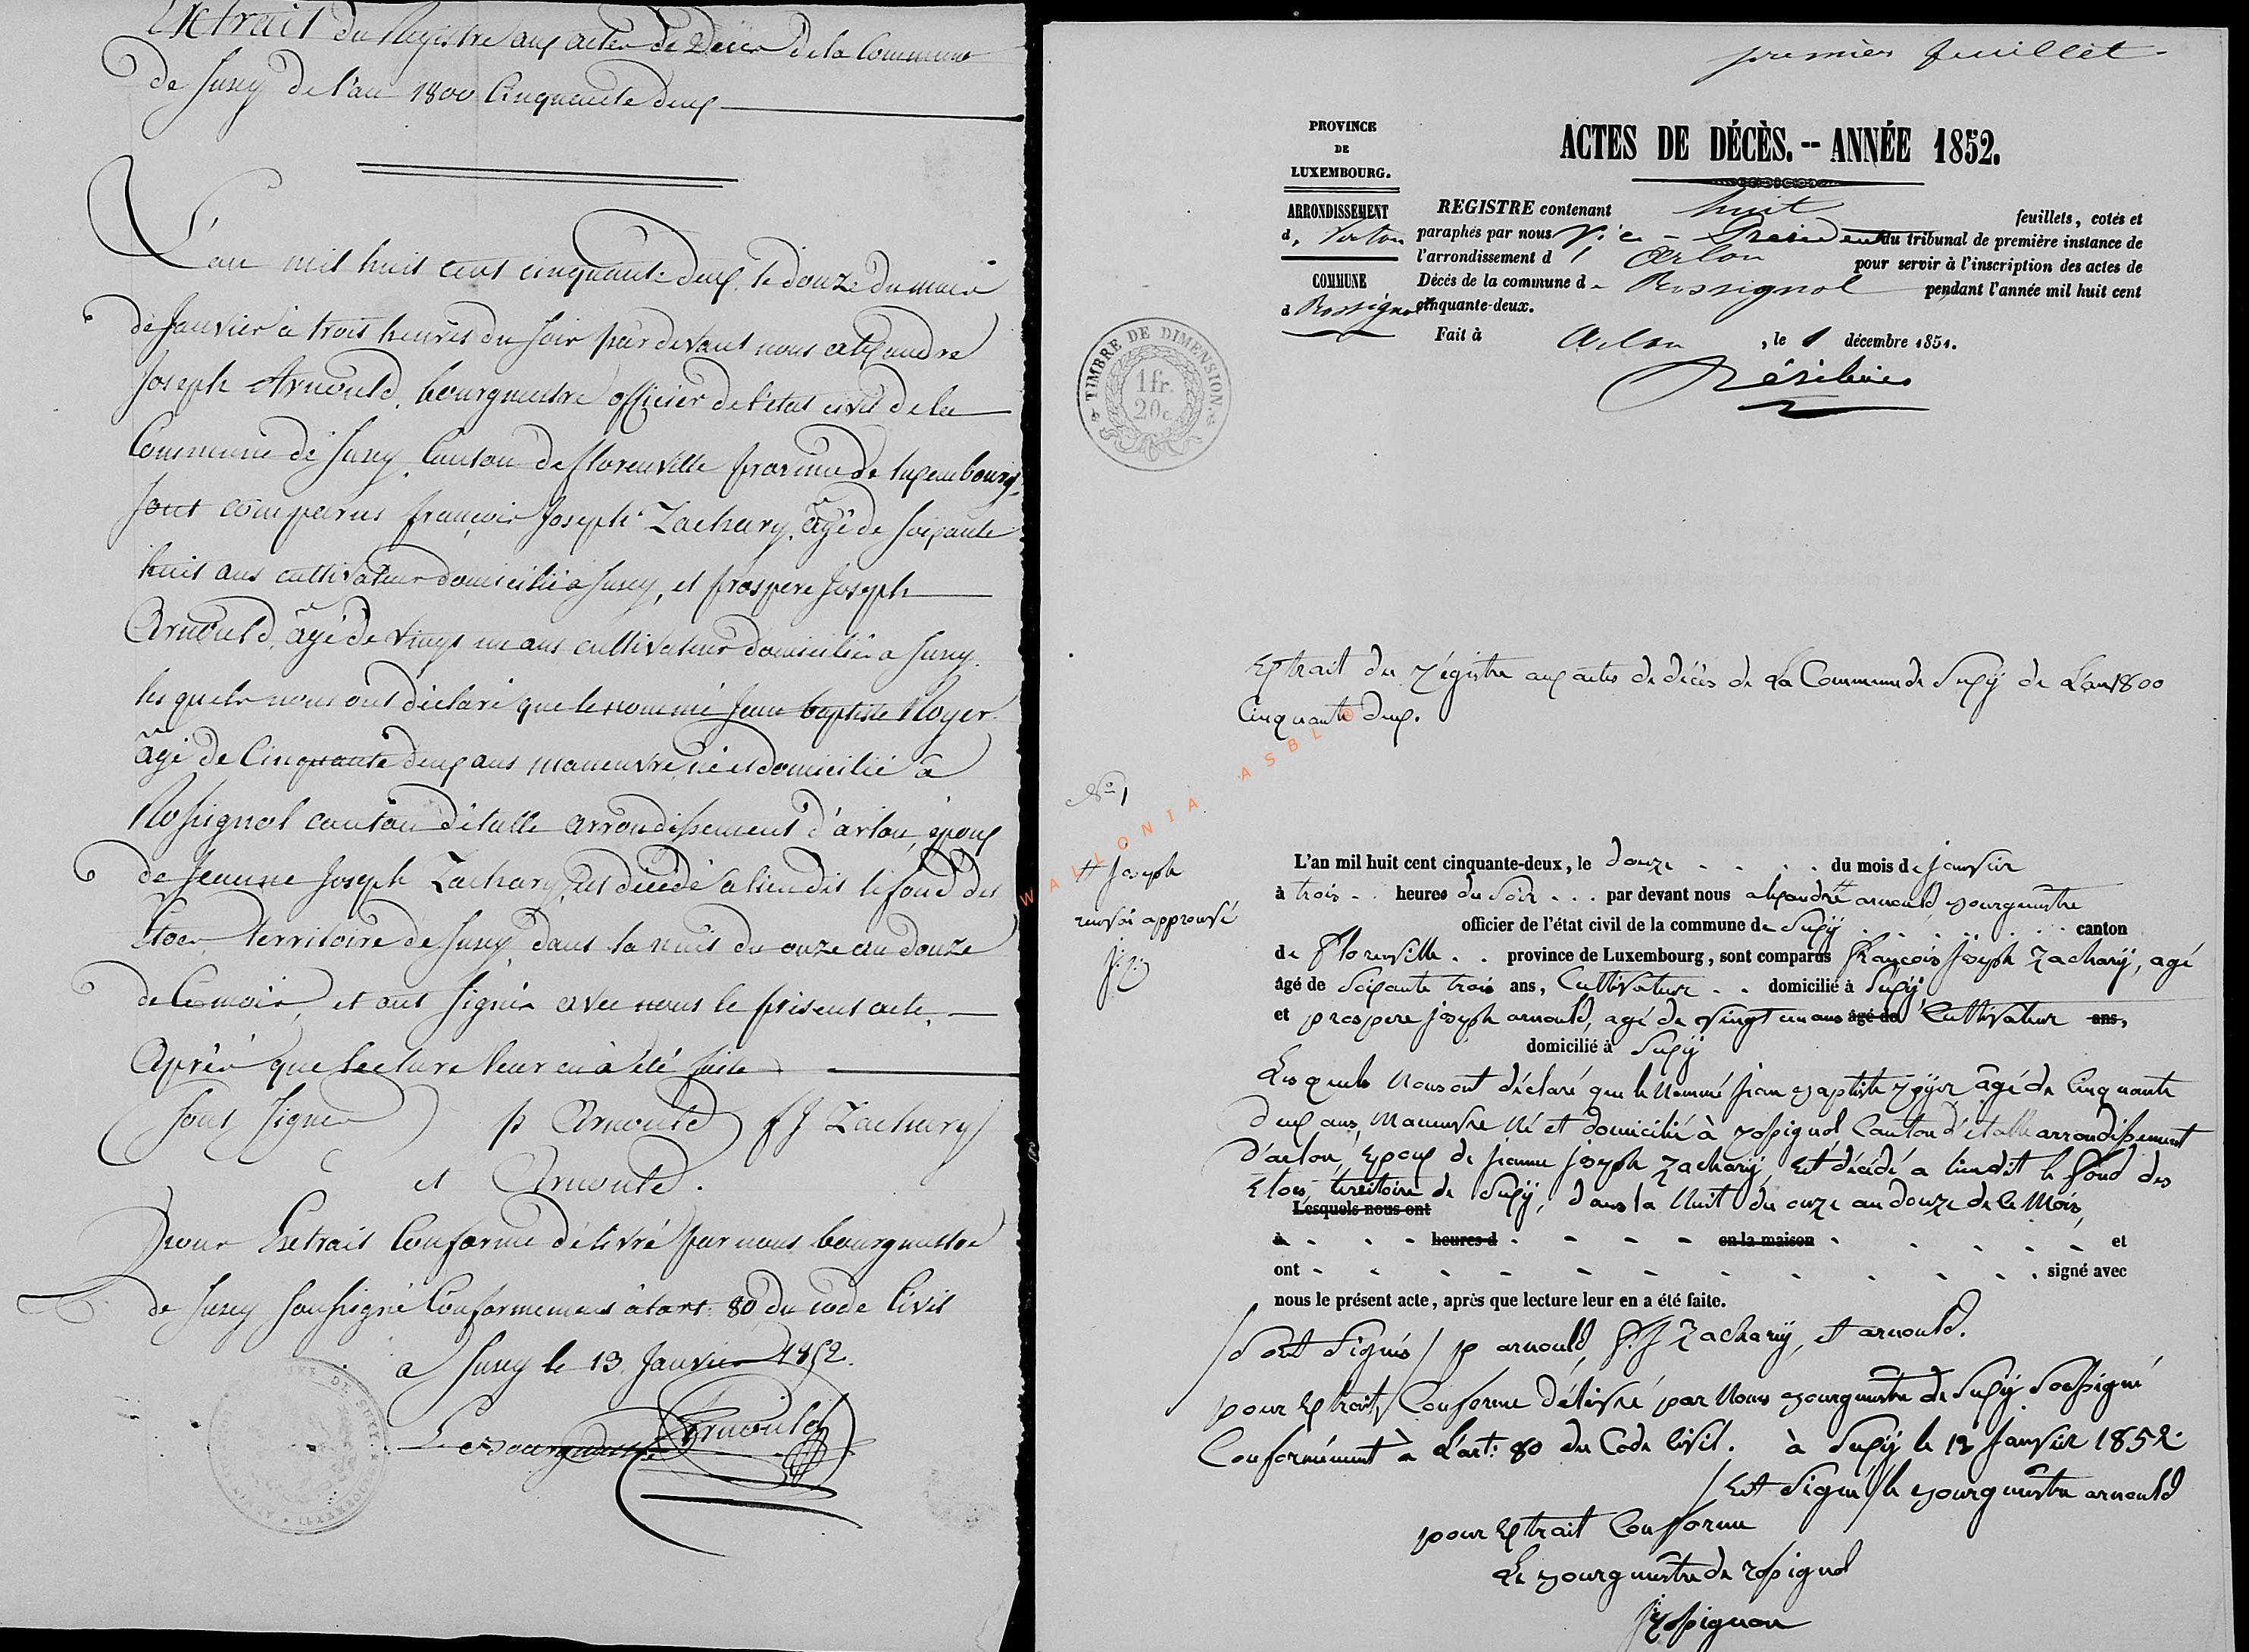 Extrait du Registre aux actes de Décès de la Commune
de Suxy de l'an 1800 Cinquante deux
L'an mil huit cent cinquante deux, le douze du mois
de Janvier à trois heures du soir par devant nous alexandre
Joseph Arnould, bourgmestre officier de l'état civil de la
Commune de Suxy, Canton de florenville province de luxembourg,
sont comparus françois Joseph Zachary, âgé de soixante
huit ans cultivateur domicilié à Suxy, et prospere Joseph
Arnould, âgé de vingt un ans cultivateur domicilié a Suxy.
les quels nous ont déclaré que le nommé Jean baptiste Royer
âgé de Cinquante deux ans manœuvre né et domicilié à
Rossignol canton d'étalle arrondissement d'arlon, époux
de Jeanne Joseph Zachary, est décédé a lieu dit le fond des
Etocs territoire de Suxy, dans la nuit du onze au douze
de Ce mois, et ont signés avec nous le présent acte,
Après que lecture leur en à été faite
(sont signés) p Arnould f J Zachary
et Arnould.
pour Extrait Conforme délivré par nous bourgmestre
de Suxy soussigné Conformement à l'art: 80 du code Civil
a Suxy le 13 Janvier 1852.
Le Bourgmestre Arnould
premier feuillet
PROVINCE
DE
LUXEMBOURG.
ACTES DE DÉCÈS. -- ANNÉE 1852.
ARRONDISSEMENT
d. Virton
COMMUNE
d Rossignol
REGISTRE contenant huit feuillets, cotés et
paraphés par nous Vice-Président du tribunal de première instance de
l'arrondissement d'Arlon pour servir à l'inscription des actes de
Décès de la commune de Rossignol pendant l'année mil huit cent
cinquante-deux.
Fait à Arlon, le 1 décembre 1851.
TIMBRE DE DIMENSION.
1 fr.
20 c.
Extrait du régistre aux actes de décès de La Commune de Suxÿ de L'an 1800
Cinquante deux.
WALLONIA ASBL ®
No 1
# Joseph
renvoi approuvé
L'an mil huit cent cinquante-deux, le douze du mois de janvier
à trois heures du soir par devant nous alexandre # arnould bourgmestre
officier de l'état civil de la commune de Suxÿ canton
de Florenville province de Luxembourg, sont comparus François Joseph Zacharÿ, agé
âgé de soixante trois ans, Cultivateur domicilié à Suxÿ,
et prospere joseph arnould, agé de vingt un ans âgé de Cultivateur ans,
domicilié à Suxÿ
Les quels Nous ont déclaré que le Nommé jean Baptiste royer âgé de Cinquante
deux ans, Manœuvre Né et domicilié à rossignol Canton d'étalle arrondissement
d'arlon, Epoux de jeanne joseph Zacharÿ, Est décédé a lieu dit le fond des
Etocs, territoire de Suxÿ, dans la Nuit du onze au douze de Ce Mois,
Lesquels nous ont
à heures d en la maison et
ont signé avec
nous le présent acte, après que lecture leur en a été faite.
/sont signés/ p arnould, F. J Zacharÿ, et arnould.
pour Extrait Conforme délivré par Nous Bourgmestre de Suxÿ Soussigné
Conformément à L'art: 80 du Code Civil. à Suxÿ le 13 Janvier 1852.
/Est Signé/ le Bourgmestre arnould
pour Extrait Conforme
Le Bourgmestre de rossignol